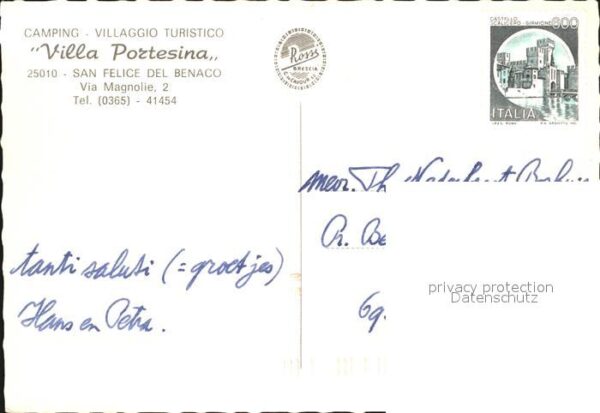 CAMPING - VILLAGGIO TURISTICO
"Villa Portesina„
25010 - SAN FELICE DEL BENACO
Via Magnolie, 2
Tel. (0365) - 41454
Rossi
BRESCIA
CASTELLO
SCALIGERO - SIRMIONE
600
ITALIA
mevr. Th.
privacy protection
Datenschutz
tanti saluti (= groetjes)
Hans en Petra.